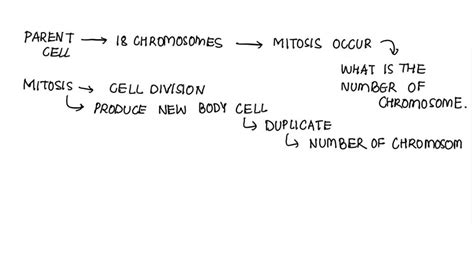 PARENT CELL → 18 CHROMOSOMES → MITOSIS OCCUR
WHAT IS THE NUMBER OF CHROMOSOME.
MITOSIS → CELL DIVISION
↳ PRODUCE NEW BODY CELL
↳ DUPLICATE
↳ NUMBER OF CHROMOSOM